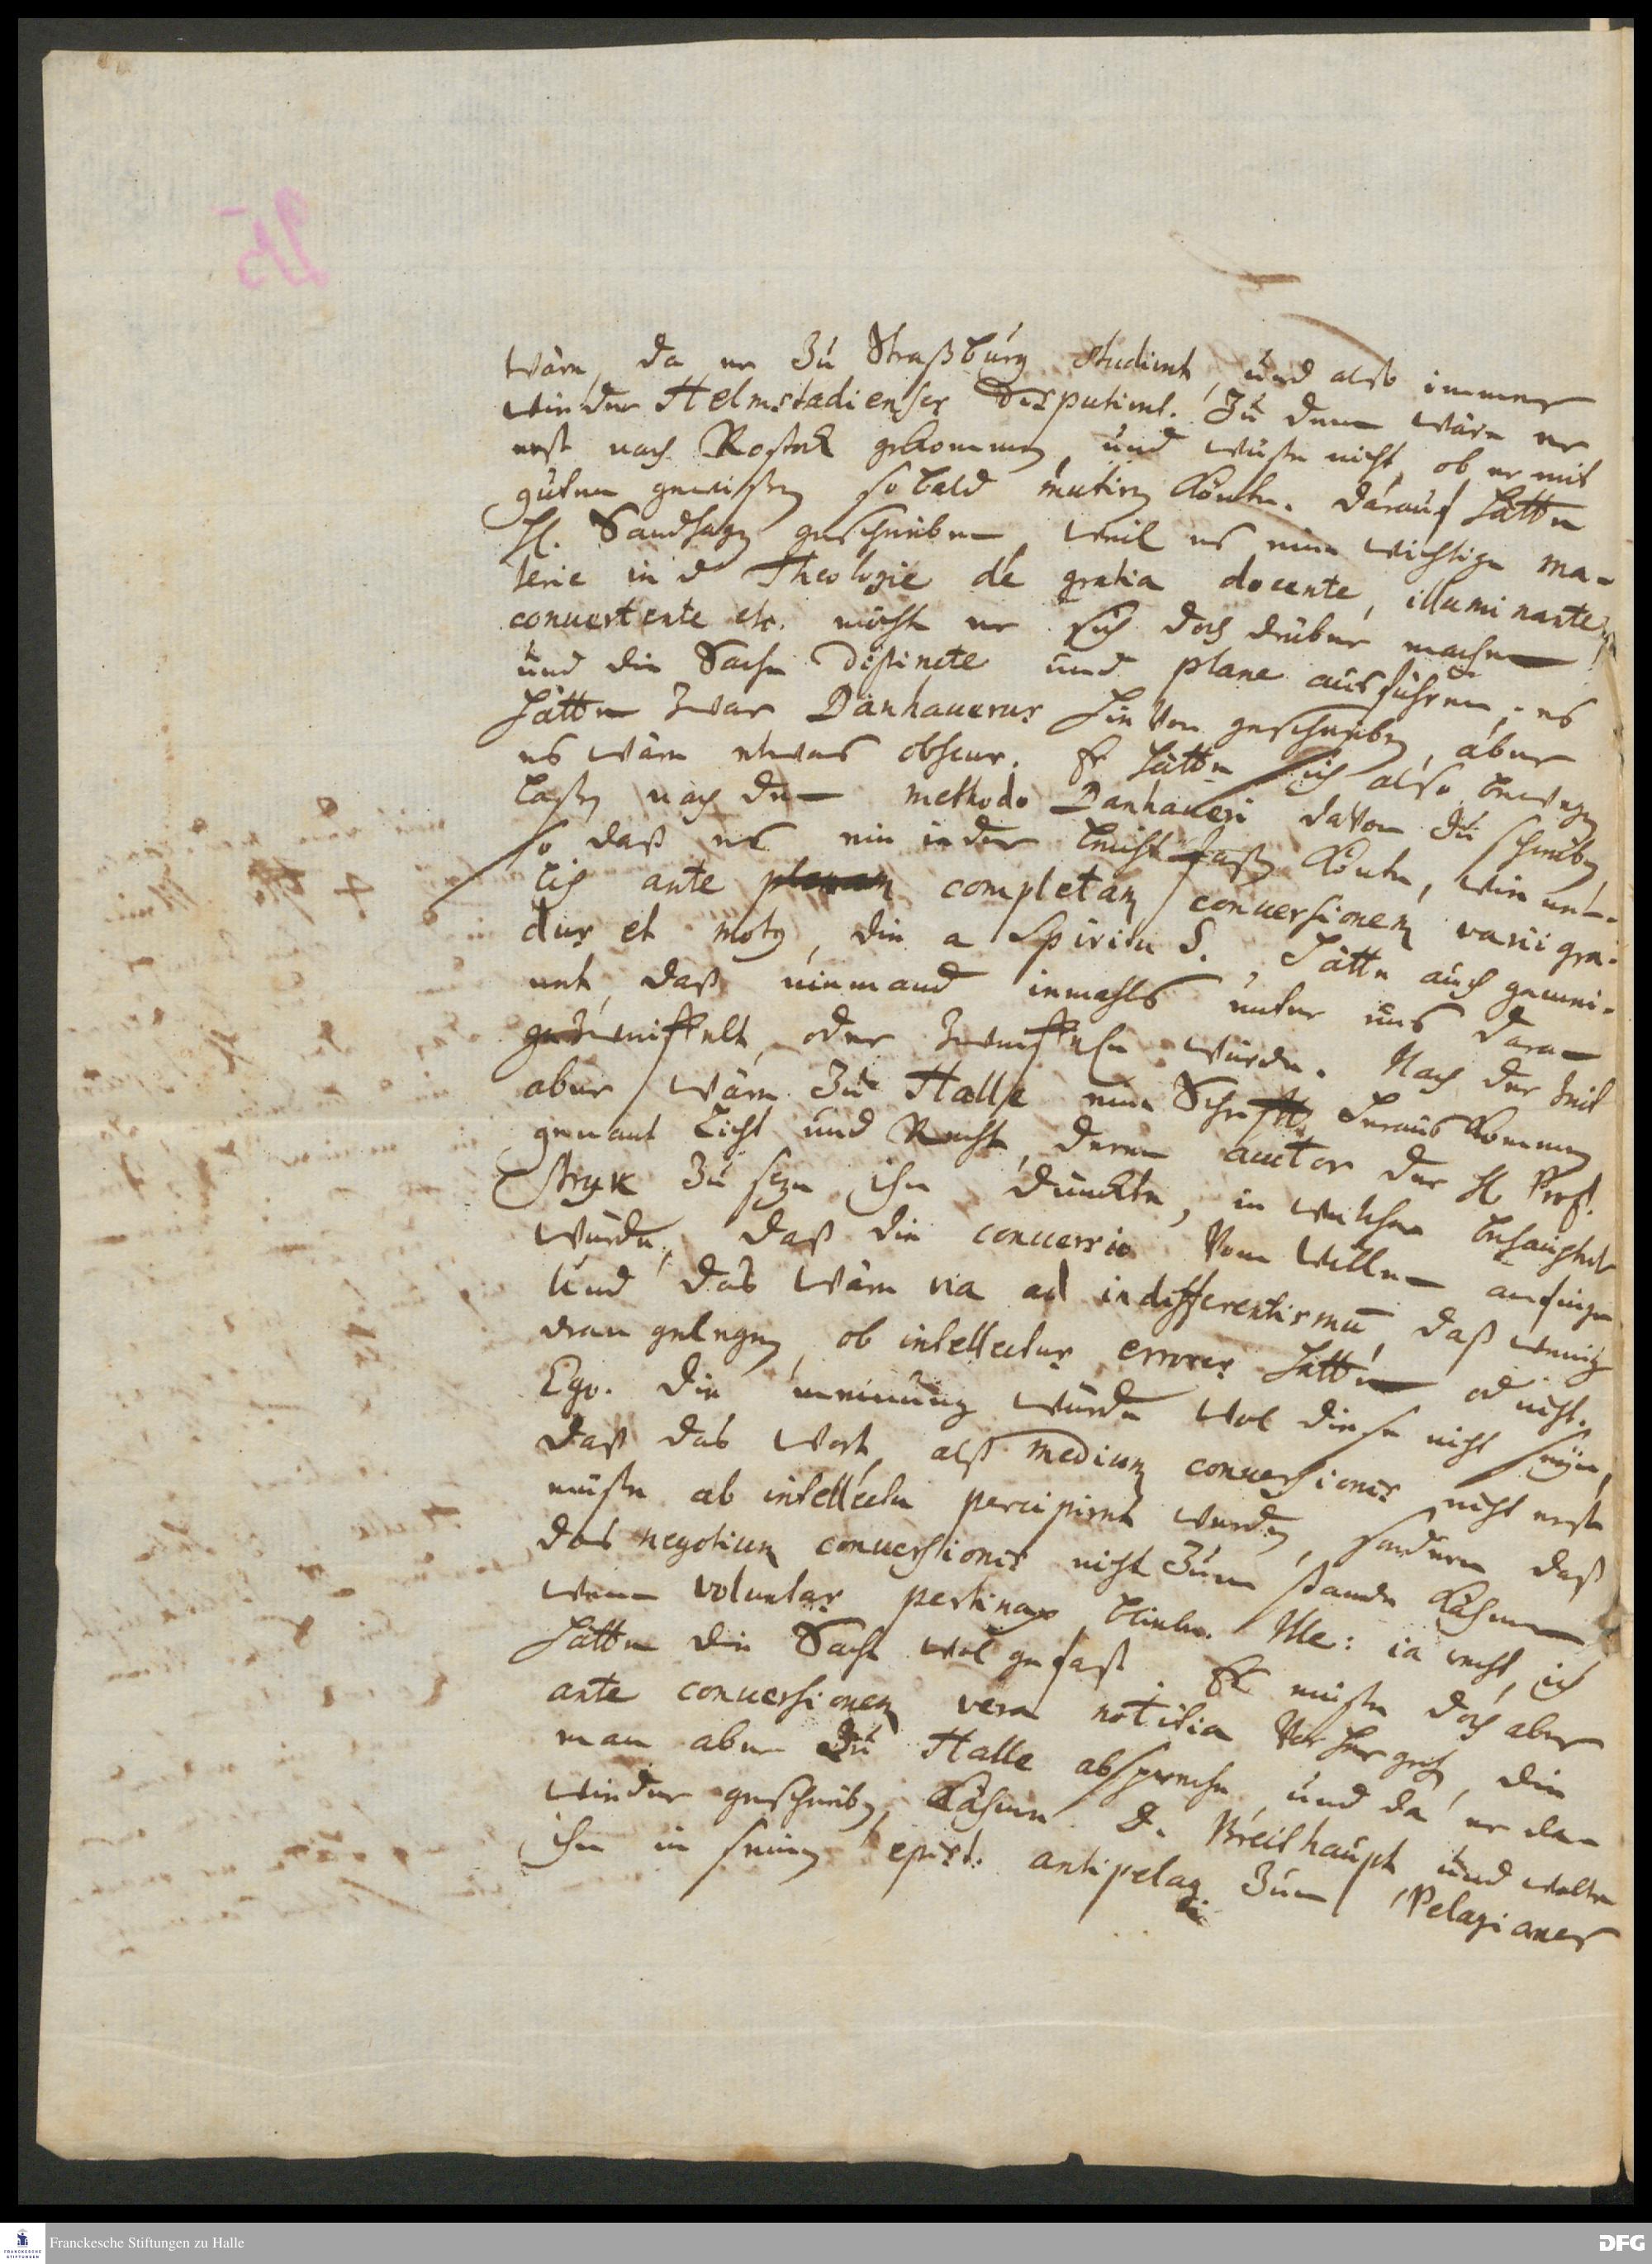 25
wäre, da er zu Straßburg studiert, und also immer
wieder Helmstadienses disputirt. Zu dem wäre er
erst nach Rostock gekommen, und wuste nicht, ob er mit
gutem gewißen so bald mutiren könte. darauf hätte
H. Sandhagen geschrieben, weil es eine wichtige ma-
terie in d Theologie de gratia docente, illuminante,
convertente etc. möchte er sich doch drüber machen
und die Sache distincte und plane ausführen; es
hätte zwar Danhauerus hievon geschrieben, aber
es wäre etwas obscur. Er hätte sich also bewegen
laßen nach der methodo Danhaueri davon zu schreiben,
so daß es ein ieder leicht faßen könte, wie nem-
lich ante planam completam conversionem varii gra-
dus et motus, die a Spiritu S., hätte auch gemei-
net, daß niemand iemahls unter uns daran
gezweiffelt, oder zweiffeln würde. Nach der zeit
aber wäre zu Halle eine Schrifft herauskommen
genant Licht und Recht, deren autor der H. Prof.
Stryk zu seyn ihn dünckte, in welcher behauptet
würde, daß die conversio vom willen anfinge
und das wäre via ad indifferentismu, daß wenig
dran gelegen, ob intellectus errores hätte od nicht.
Ego. die meinung würde wol diese nicht seyn,
daß das wort, alß medium conversionis nicht erst
müste ab intellectu percipirt werden, sondern daß
das negotium conversionis nicht zum stande kähme
wenn voluntas pertinax bliebe. Ille: ia recht, ich
hätte die Sach wol gefast. Es müste doch aber
ante conversionem vera notitia vorhergehn, die
man aber zu Halle abspreche, und da er da-
wieder geschrieben, kähme D. Breithaupt und wolte
ihn in seinen epist. antipelag. zum Pelagianer
Franckesche Stiftungen zu Halle
DFG